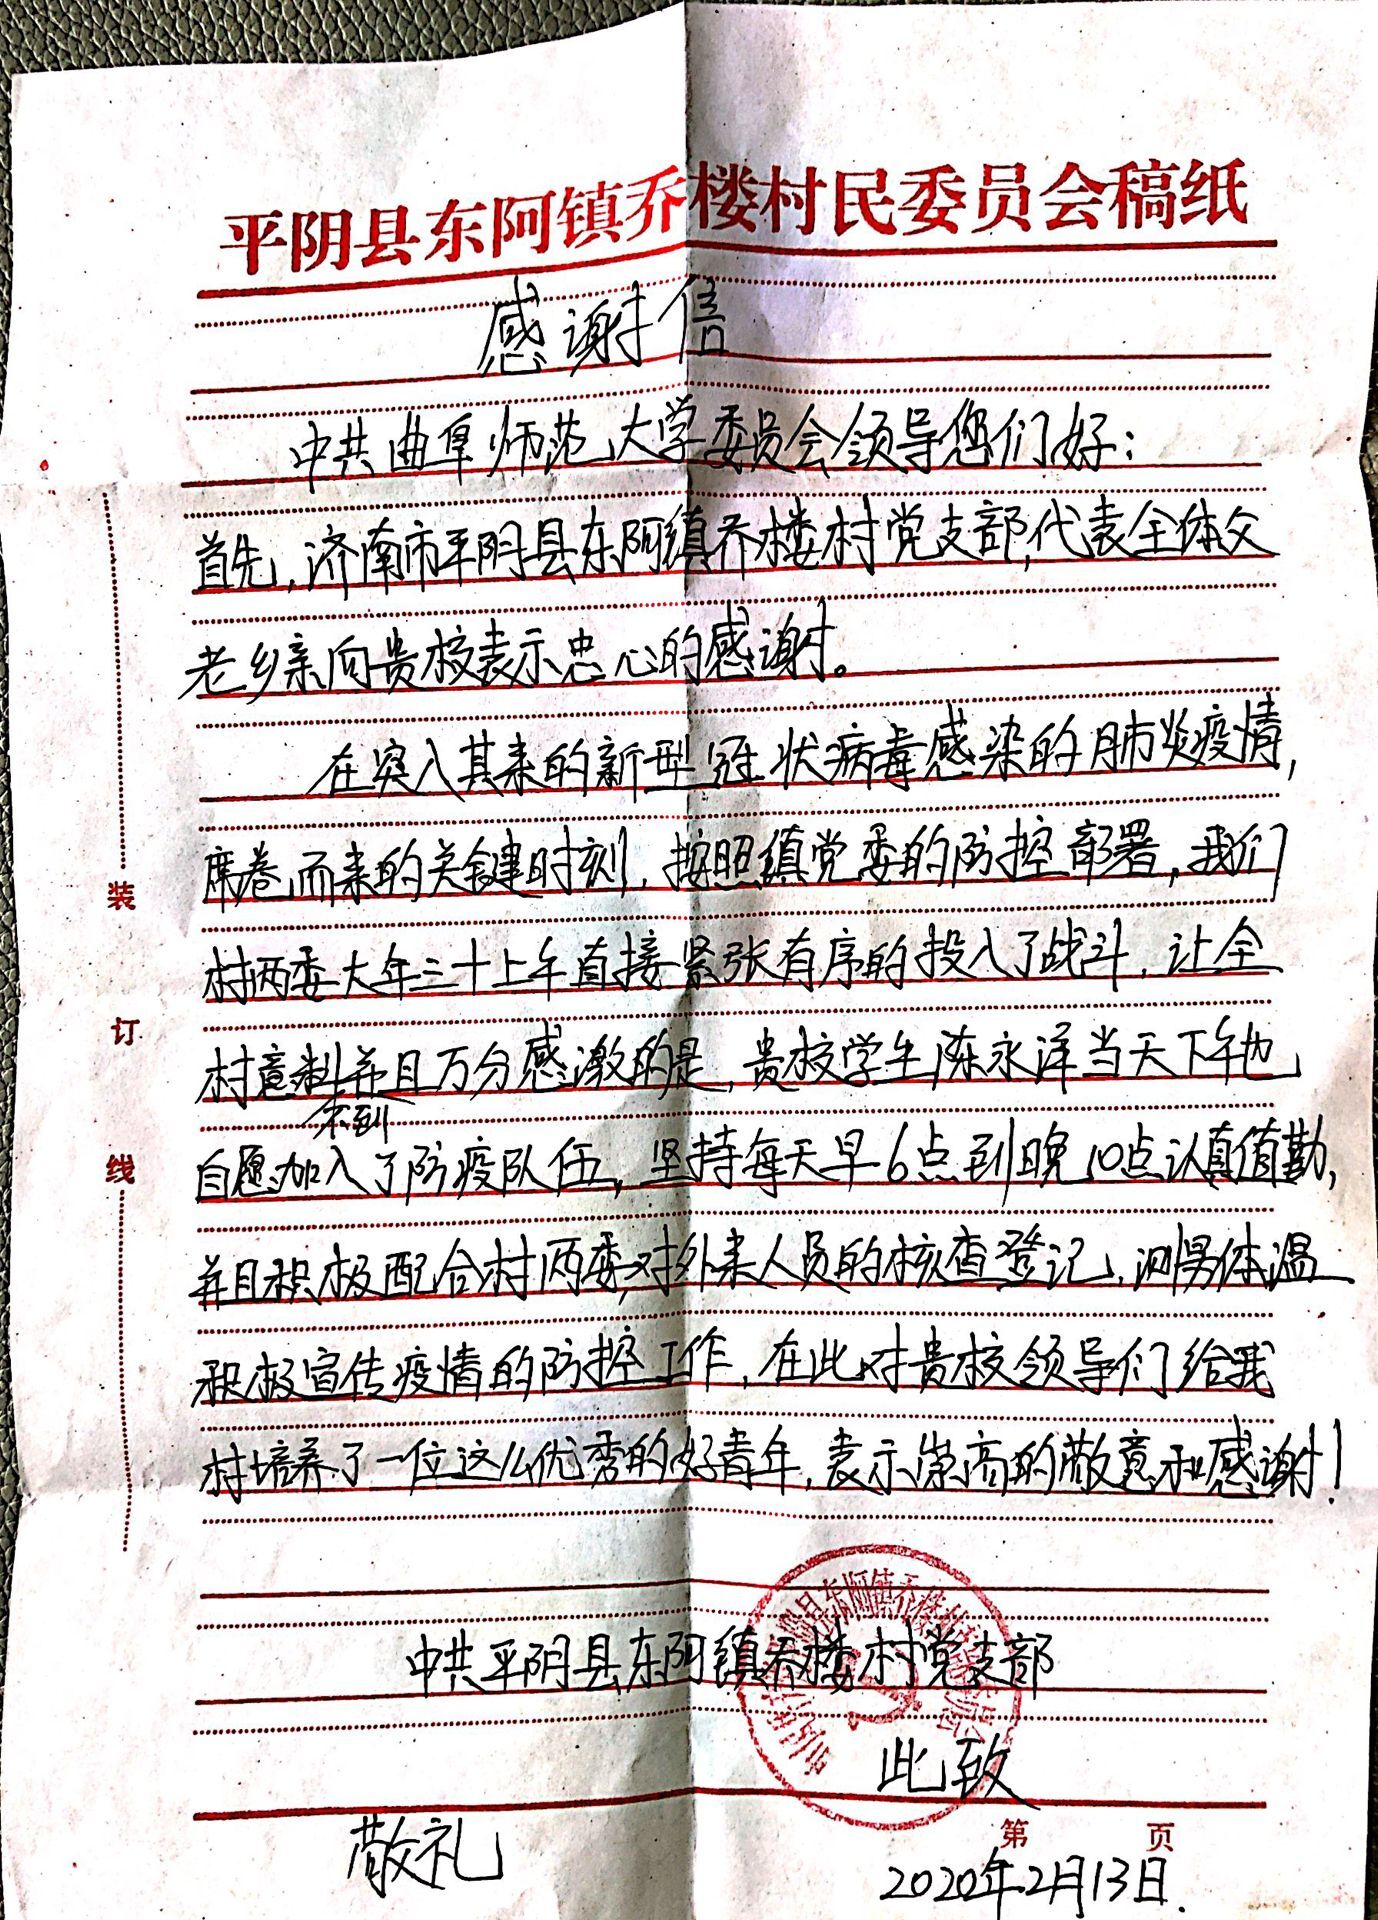 平阴县东阿镇乔楼村民委员会稿纸
感谢信
中共曲阜师范大学委员会领导您们好：
首先，济南市平阴县东阿镇乔楼村党支部，代表全体父
老乡亲向贵校表示忠心的感谢。
在突入其来的新型冠状病毒感染的肺炎疫情，
席卷而来的关键时刻，按照镇党委的防控部署，我们
村两委大年三十上午直接紧张有序的投入了战斗，让全
村意料不到并且万分感激的是，贵校学生陈永泽当天下午也
自愿加入了防疫队伍，坚持每天早6点到晚10点认真值勤，
并且积极配合村两委，对外来人员的核查登记，测量体温
积极宣传疫情的防控工作，在此对贵校领导们给我
村培养了一位这么优秀的好青年，表示崇高的敬意和感谢！
中共平阴县东阿镇乔楼村党支部
此致
敬礼
第 页
2020年2月13日.
装订线